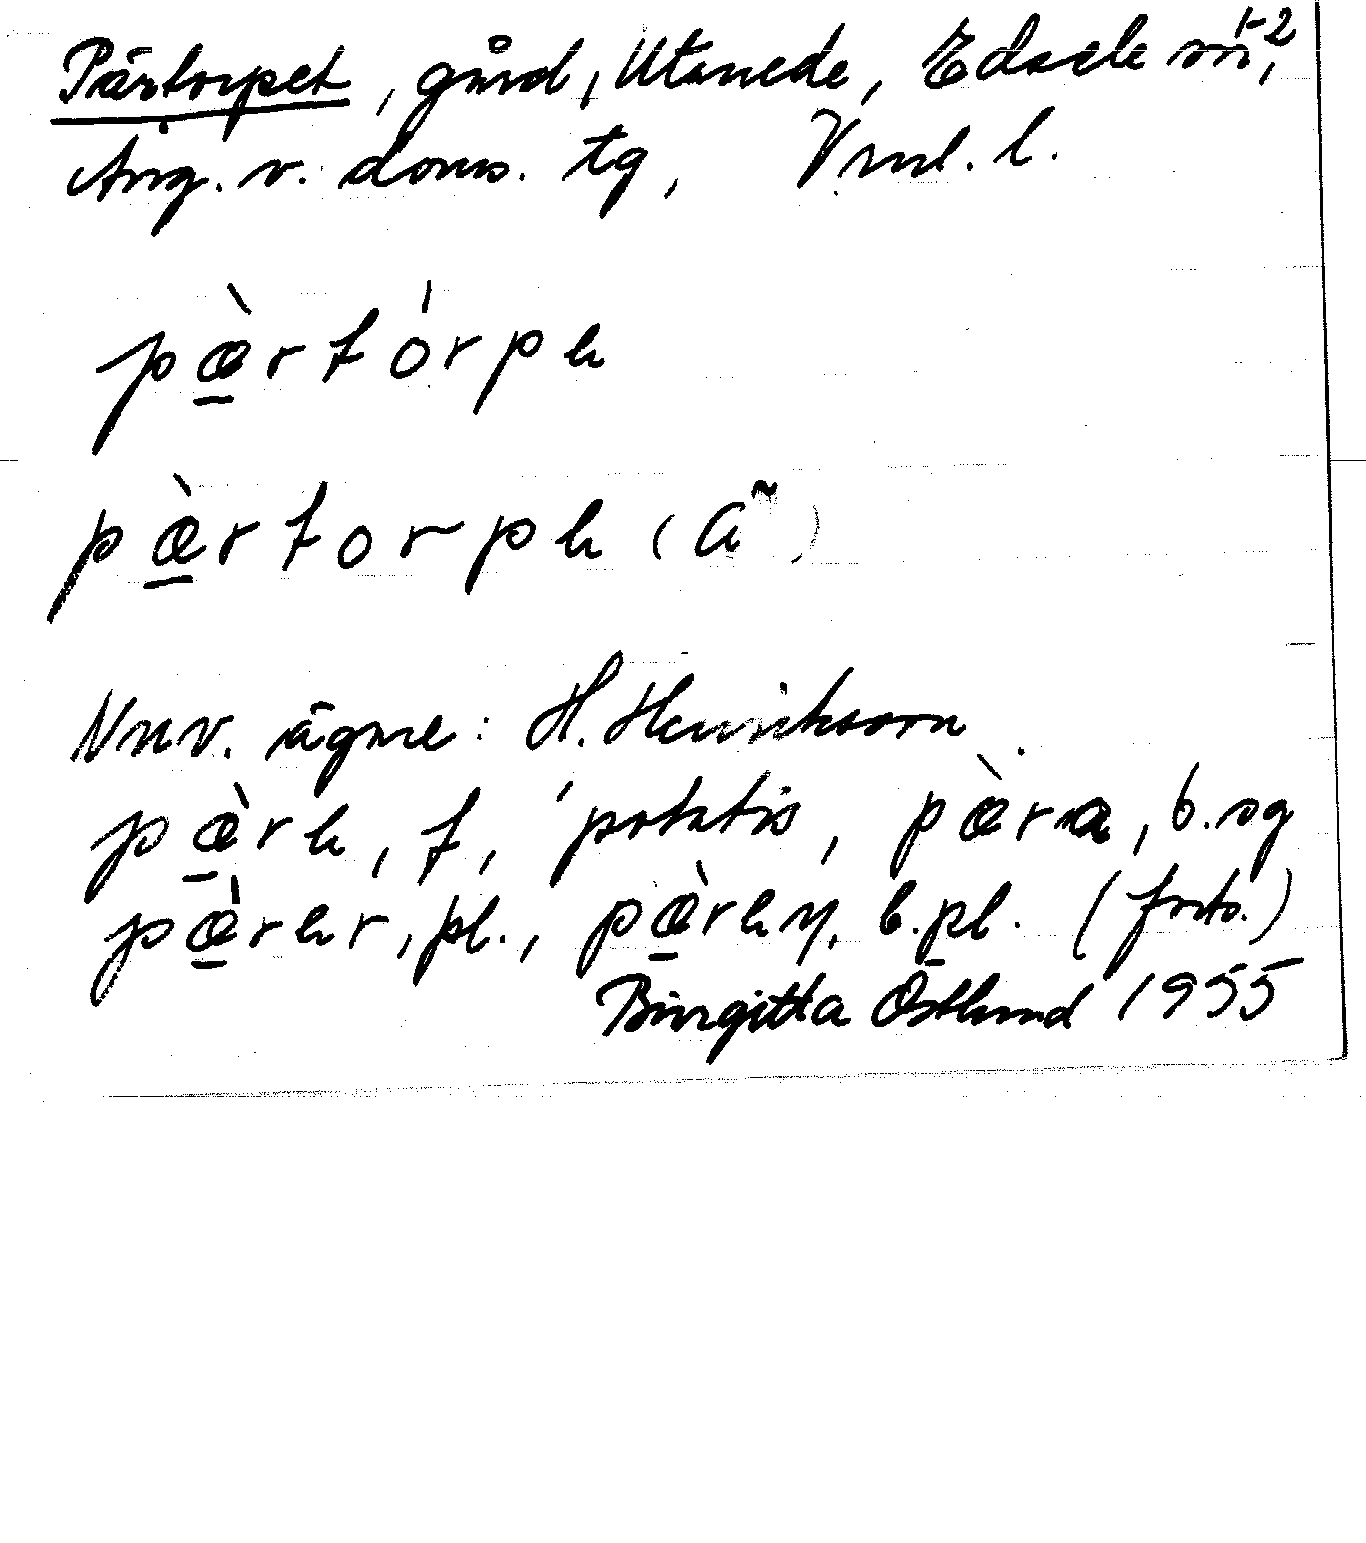 Pärtorpet, gård, Utanede, Edsele sn 1-2,
Ång. v. doms. tg, Vrnl. l.
pæ̀rtórpe
pæ̀rtorpe (ã)
Nuv. ägare: H. Henriksson
pæ̀re, f, 'potatis, pæ̀ra, b.sg
pæ̀rer, pl., pæ̀reŋ, b.pl. (forts.)
Birgitta Östlund 1955